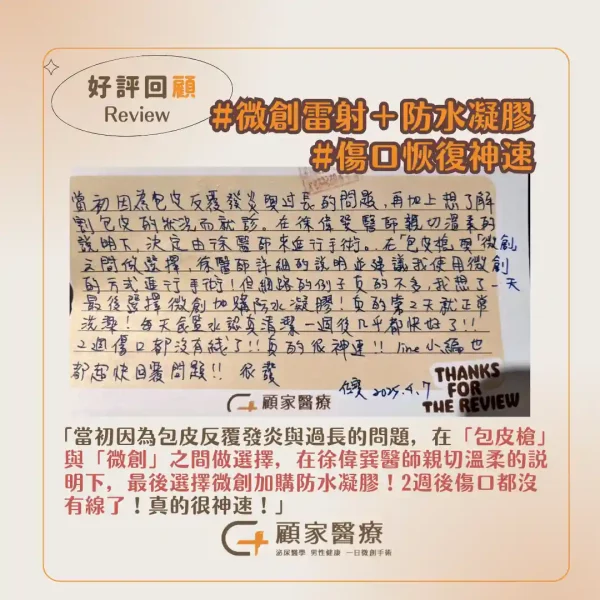 好評回顧
Review
#微創雷射＋防水凝膠
#傷口恢復神速
當初因為包皮反覆發炎與過長的問題，再加上想了解
割包皮的狀況而就診。在徐偉巽醫師親切溫柔的
說明下，決定由徐醫師來進行手術。在「包皮槍」與「微創」
之間做選擇，徐醫師詳細的說明並建議我使用微創
的方式進行手術！但網路的例子真的不多，我想了一天
最後選擇微創加購防水凝膠！真的第2天就正常
洗澡！每天食鹽水認真清潔一週後几乎都快好了!!
2週傷口都沒有綫了!!真的很神速!! line小編也
都超快回覆問題!! 很發
2025.4.7
THANKS
FOR
THE REVIEW
顧家醫療
「當初因為包皮反覆發炎與過長的問題，在「包皮槍」
與「微創」之間做選擇，在徐偉巽醫師親切溫柔的説
明下，最後選擇微創加購防水凝膠！2週後傷口都沒
有線了！真的很神速！」
顧家醫療
泌尿醫學 男性健康 一日微創手術